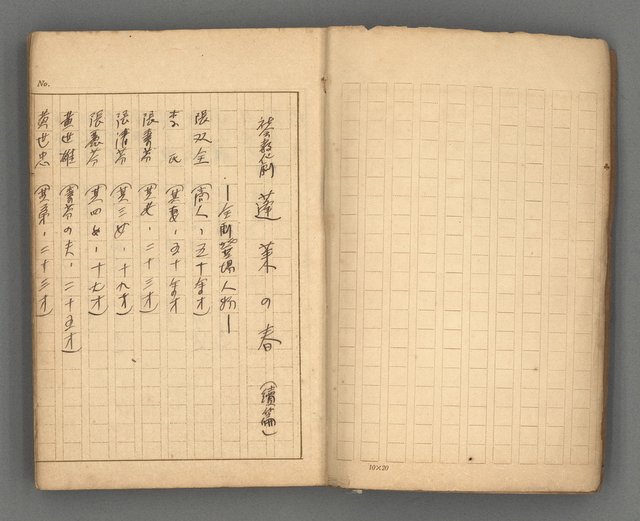 社会教化劇 蓬莱の春 (續篇)
—全劇登場人物—
張双全 (商人、五十才)
李 氏 (其妻、五十才
張春芳 (其女、二十三才)
張清芳 (其三女、十九才)
張惠芳 (其四女、十七才)
黄世雄 (春芳の夫、二十五才)
黄世忠 (其弟、二十三才)
No.
10×20